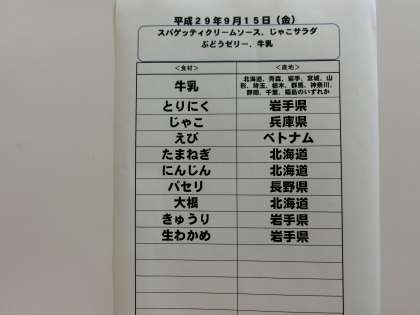 平成２９年９月１５日（金）
スパゲッティクリームソース、じゃこサラダ
ぶどうゼリー、牛乳
＜食材＞ ＜産地＞
牛乳 北海道、青森、岩手、宮城、山形、埼玉、栃木、群馬、神奈川、静岡、千葉、福島のいずれか
とりにく 岩手県
じゃこ 兵庫県
えび ベトナム
たまねぎ 北海道
にんじん 北海道
パセリ 長野県
大根 北海道
きゅうり 岩手県
生わかめ 岩手県